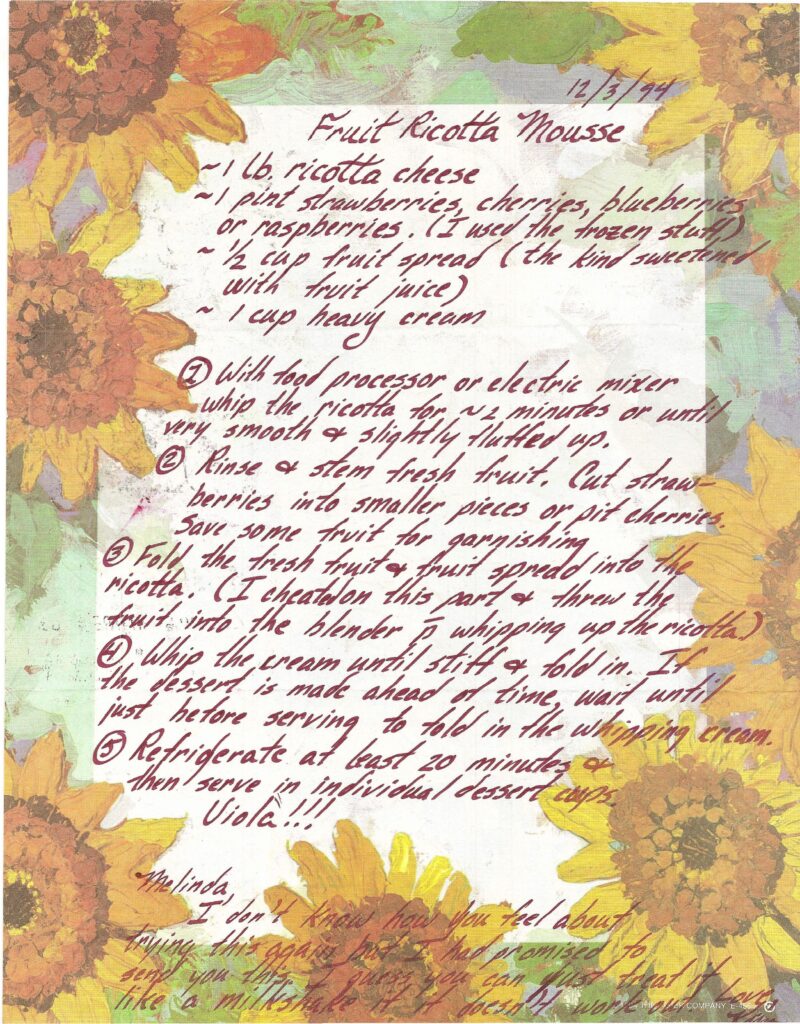 12/3/94
Fruit Ricotta Mousse
~1 lb. ricotta cheese
~1 pint strawberries, cherries, blueberries
or raspberries. (I used the frozen stuff)
~ 1/2 cup fruit spread (the kind sweetened
with fruit juice)
~ 1 cup heavy cream
① With food processor or electric mixer
whip the ricotta for ~2 minutes or until
very smooth & slightly fluffed up.
② Rinse & stem fresh fruit. Cut straw-
berries into smaller pieces or pit cherries.
Save some fruit for garnishing
③ Fold the fresh fruit & fruit spread into the
ricotta. (I cheated on this part & threw the
fruit into the blender p̄ whipping up the ricotta.)
④ Whip the cream until stiff & fold in. If
the dessert is made ahead of time, wait until
just before serving to fold in the whipping cream.
⑤ Refrigerate at least 20 minutes &
then serve in individual dessert cups.
Viola!!!
Melinda,
I don't know how you feel about
trying this again but I had promised to
send you this. I guess you can just treat it
like a milkshake if it doesn't work out
COMPANY